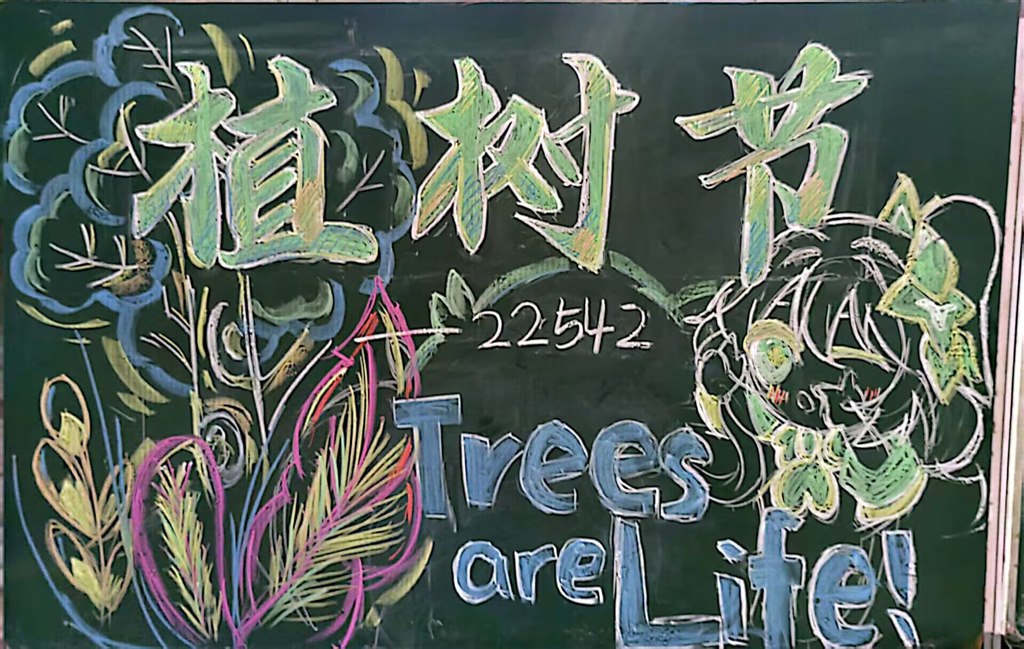 植树节
—22542
Trees
are Life!